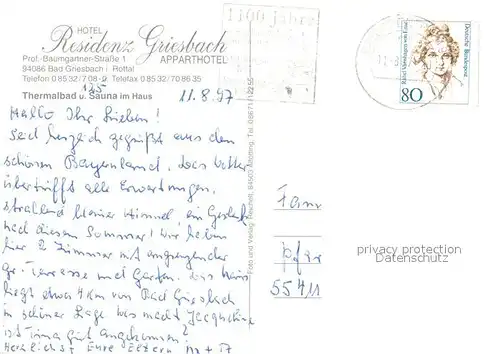 HOTEL
Residenz Griesbach
APPARTHOTEL
Prof.-Baumgartner-Straße 1
94086 Bad Griesbach i. Rottal
Telefon 0 85 32 / 7 08-0 Telefax 0 85 32 / 70 86 35
125
Thermalbad u. Sauna im Haus
11.8.97
1100 Jahre
Deutsche Bundespost
Rahel Varnhagen von Ense
80
Hallo Ihr Lieben!
Seid herzlich gegrüßt aus dem
schönen Bayernland, das Wetter
übertrifft alle Erwartungen.
strahlend blauer Himmel, ein Geschenk
nach diesem Sommer! Wir haben
hier 2 Zimmer mit angrenzender
gr. Terrasse und Garten. Das Haus
liegt etwa 4 km von Bad Griesbach
in schöner Lage. Was macht Jacqueline
ist Tima gut angekommen?
Herzlichst Eure Eltern
Foto und Verlag Freicht, 84503 Altötting, Tel. 08671/12255
Fam
Pfar
55411
privacy protection
Datenschutz